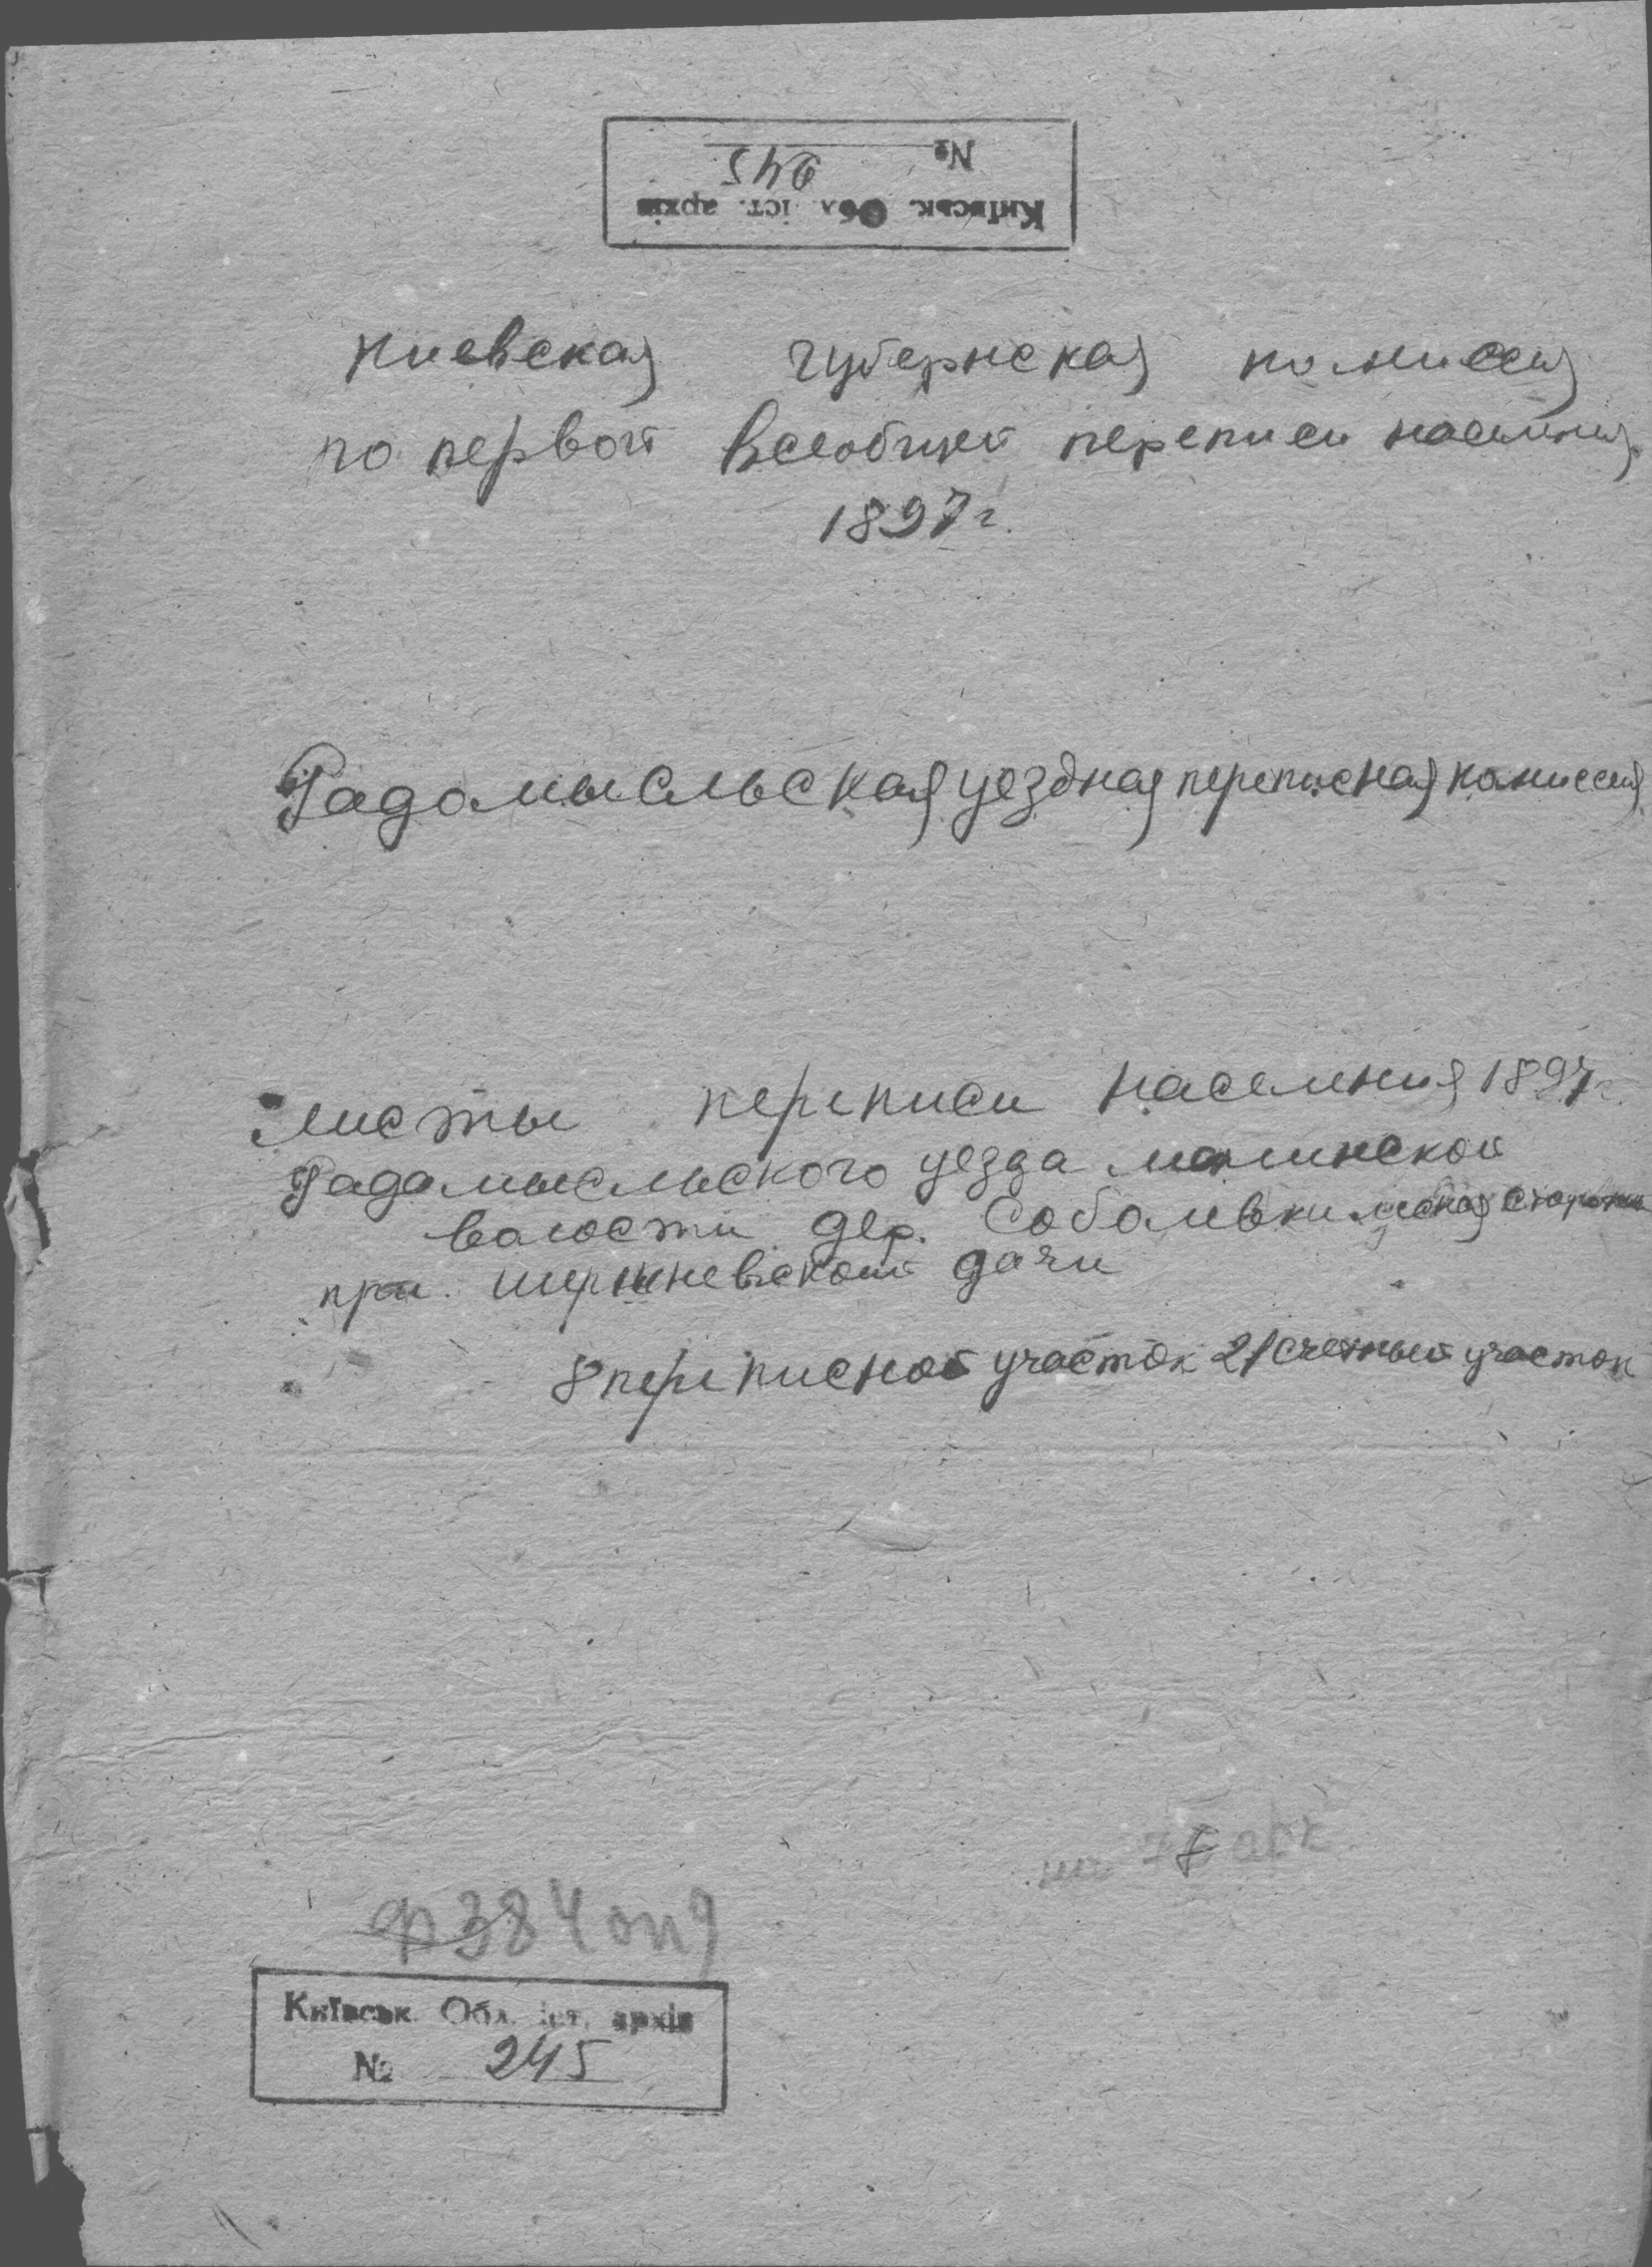 Київськ. Обл. іст. архів
№ 245
Киевская губернская комиссия
по первой всеобщей переписи населения
1897 г.
Радомысльская уездная переписная комиссия
Листы переписи населения 1897 г.
Радомысльского уезда Малинской
волости дер. Соболевки лесная сторожка
при дачи
8 переписной участок 21 счетный участок
арк
Ф 384 оп 9
Київськ. Обл. іст. архів
№ 245